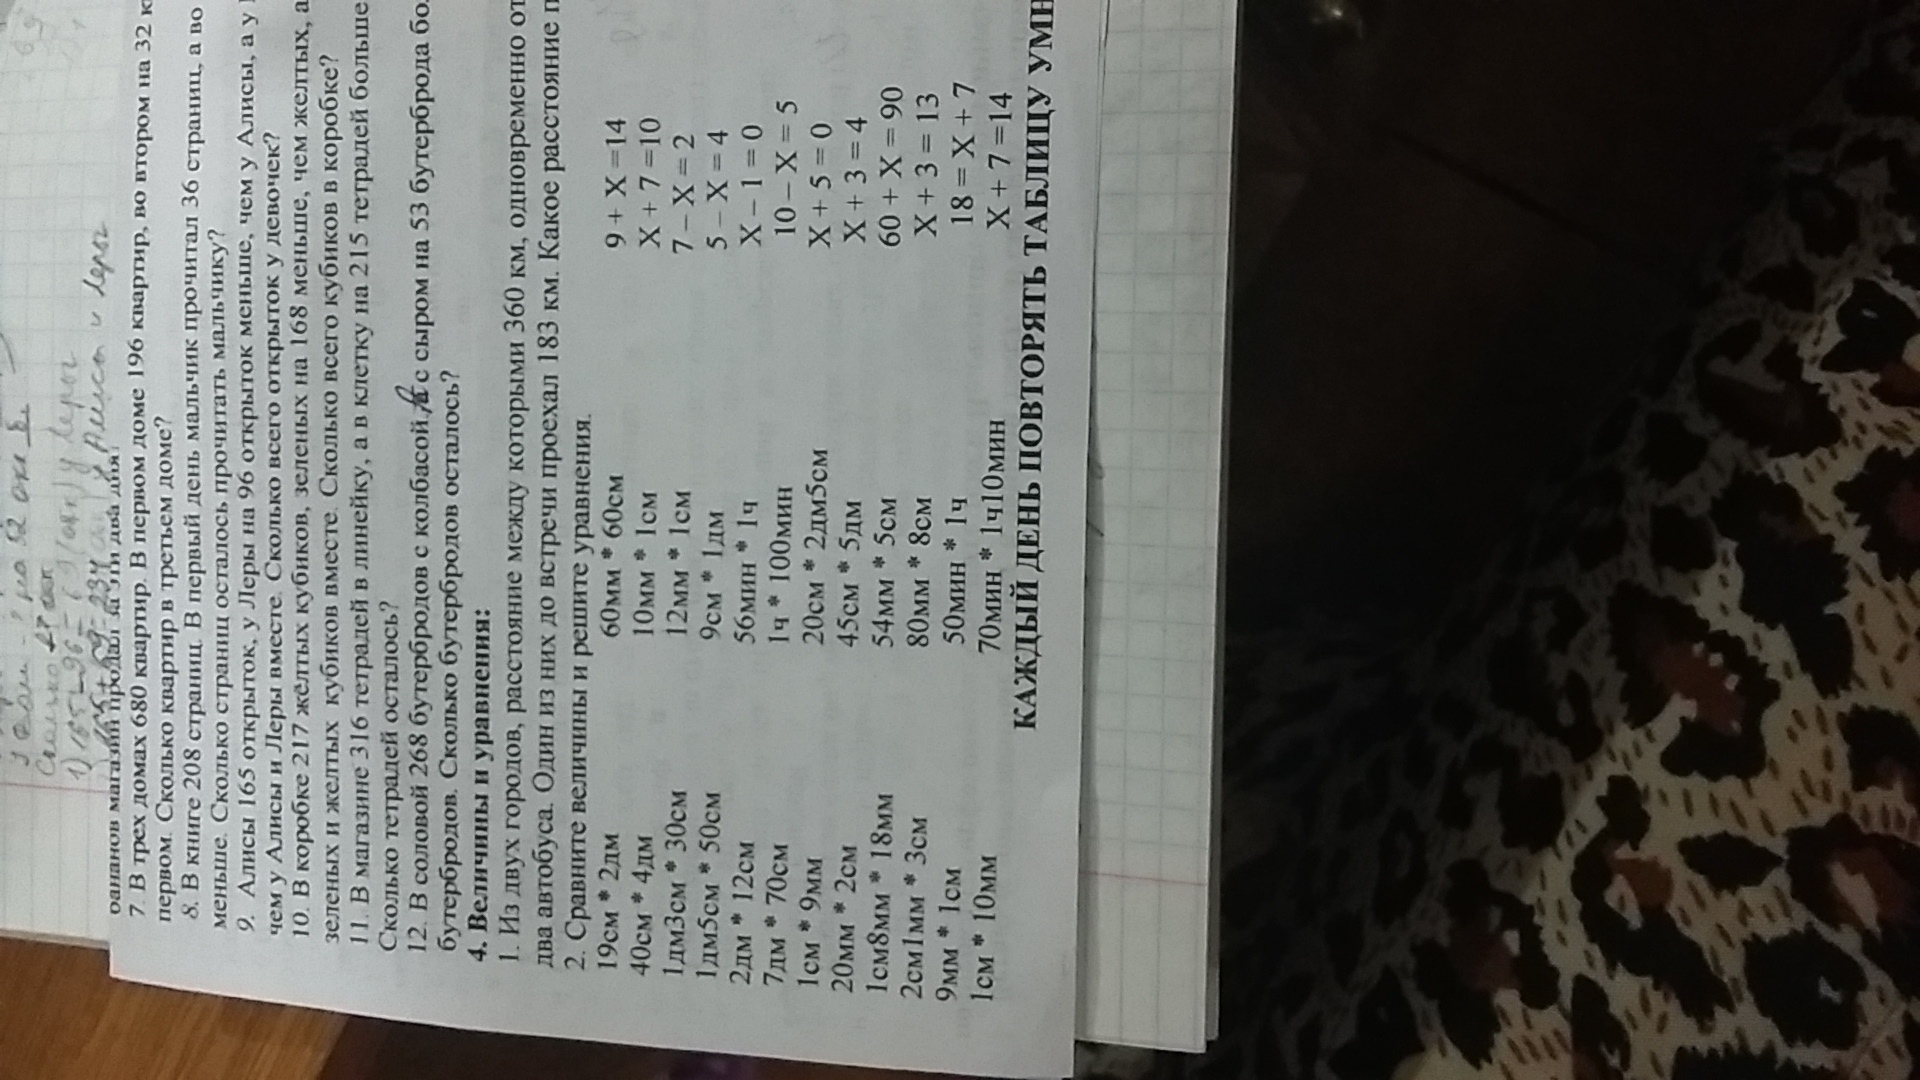 Сколько
7. В трех домах 680 квартир. В первом доме 196 квартир, во втором на 32
первом. Сколько квартир в третьем доме?
8. В книге 208 страниц. В первый день мальчик прочитал 36 страниц, а во
меньше. Сколько страниц осталось прочитать мальчику?
9. Алисы 165 открыток, у Леры на 96 открыток меньше, чем у Алисы, а у
чем у Алисы и Леры вместе. Сколько всего открыток у девочек?
10. В коробке 217 желтых кубиков, зеленых на 168 меньше, чем желтых, а
зеленых и желтых кубиков вместе. Сколько всего кубиков в коробке?
11. В магазине 316 тетрадей в линейку, а в клетку на 215 тетрадей больше
Сколько тетрадей осталось?
12. В соловой 268 бутербродов с колбасой, с сыром на 53 бутерброда
бутербродов. Сколько бутербродов осталось?
4. Величины и уравнения:
1. Из двух городов, расстояние между которыми 360 км, одновременно
два автобуса. Один из них до встречи проехал 183 км. Какое расстояние
2. Сравните величины и решите уравнения.
19см * 2дм 60мм * 60см 9 + X =14
40см * 4дм 10мм * 1см X + 7 =10
1дм3см * 30см 12мм * 1см 7 – X = 2
1дм5см * 50см 9см * 1дм 5 – X = 4
2дм * 12см 56мин * 1ч X – 1 = 0
7дм * 70см 1ч * 100мин 10 – X = 5
1см * 9мм 20см * 2дм5см X + 5 = 0
20мм * 2см 45см * 5дм X + 3 = 4
1см8мм * 18мм 54мм * 5см 60 + X = 90
2см1мм * 3см 80мм * 8см X + 3 = 13
9мм * 1см 50мин * 1ч 18 = X + 7
1см * 10мм 70мин * 1ч10мин X + 7 =14
КАЖДЫЙ ДЕНЬ ПОВТОРЯТЬ ТАБЛИЦУ